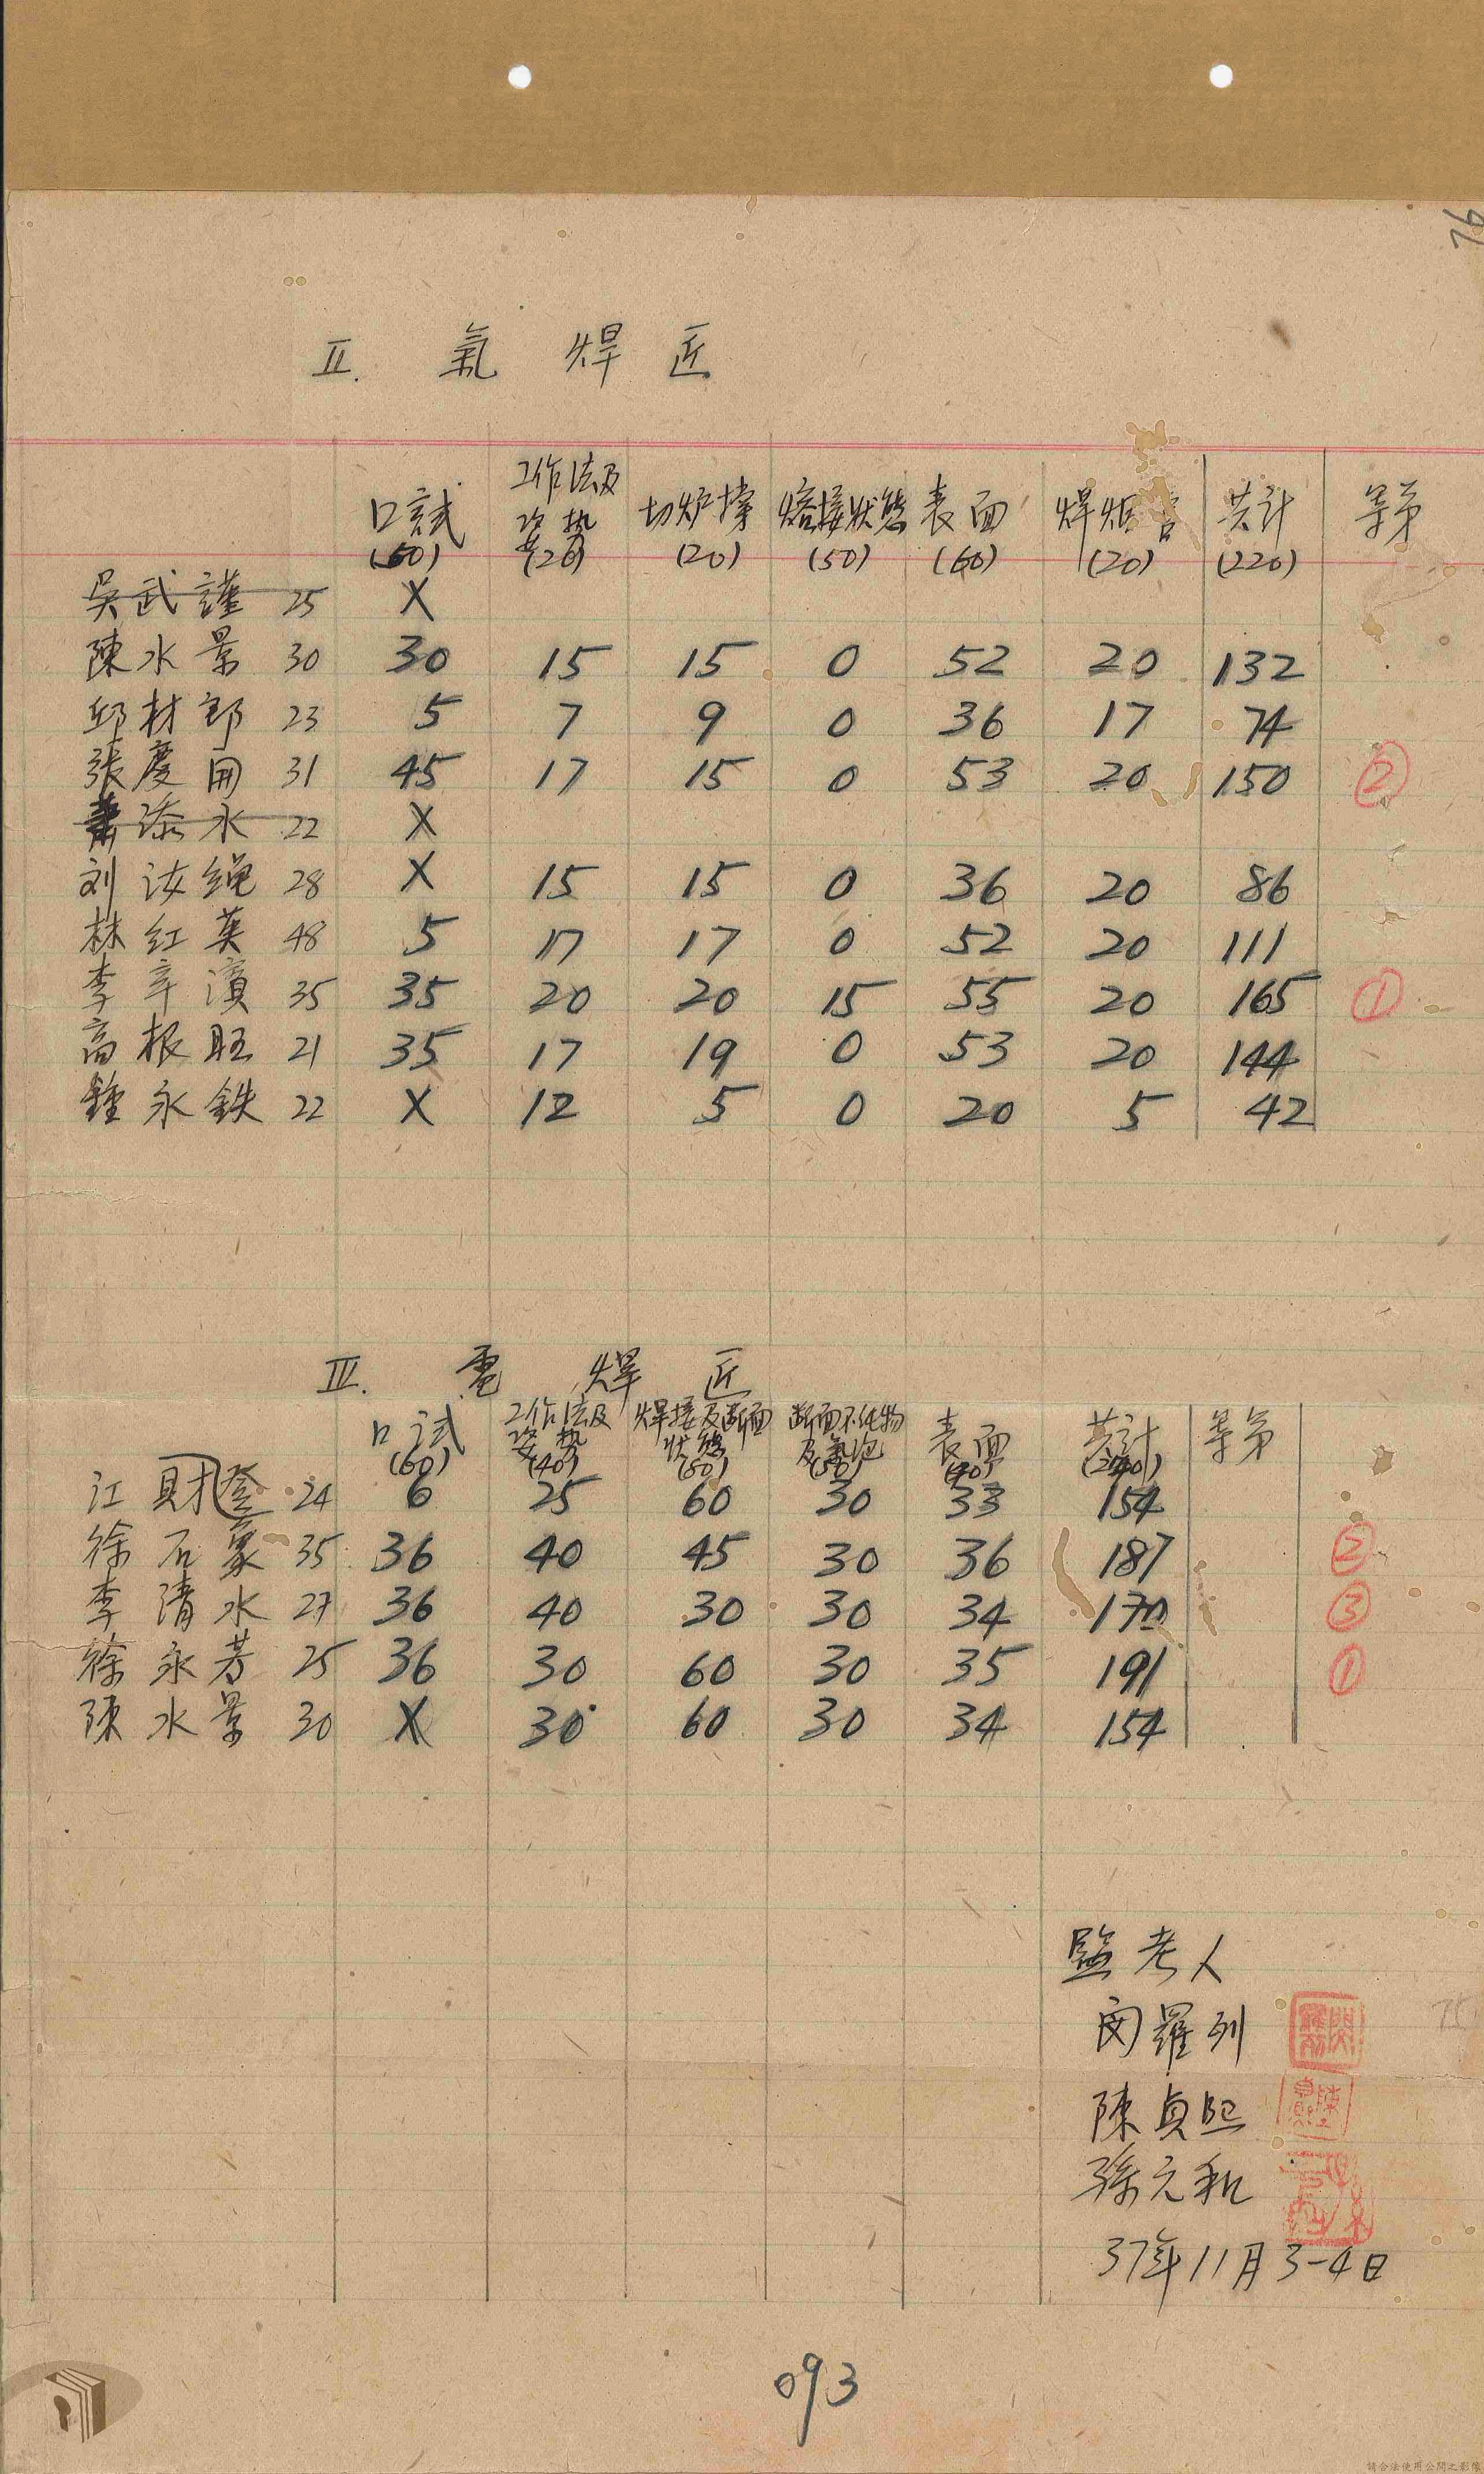 76
II. 氣焊匠
口試 (60) 工作法及姿勢 (20) 切炉撑 (20) 熔接狀態 (50) 表面 (60) 焊炬 (20) 共計 (220) 等第
吳武謹 25 X
陳水景 30 30 15 15 0 52 20 132
邱材郎 23 5 7 9 0 36 17 74
張慶開 31 45 17 15 0 53 20 150 ②
蕭添水 22 X
刘汝绳 28 X 15 15 0 36 20 86
林红英 48 5 17 17 0 52 20 111
李辛濱 35 35 20 20 15 55 20 165 ①
高根旺 21 35 17 19 0 53 20 144
鍾永鉄 22 X 12 5 0 20 5 42
III. 電焊匠
口試 (60) 工作法及姿勢 (40) 焊接及断面狀態 断面不純物及氣泡 表面 (40) 共計 等第
江財登 24 6 25 60 30 33 154
徐石象 35 36 40 45 30 36 187 ②
李清水 27 36 40 30 30 34 170 ③
徐永芳 25 36 30 60 30 35 191 ①
陳水景 30 X 30 60 30 34 154
監考人
閔羅列
陳貞熙
孫元私
37年11月3-4日
75
093
請合法使用公開之影像